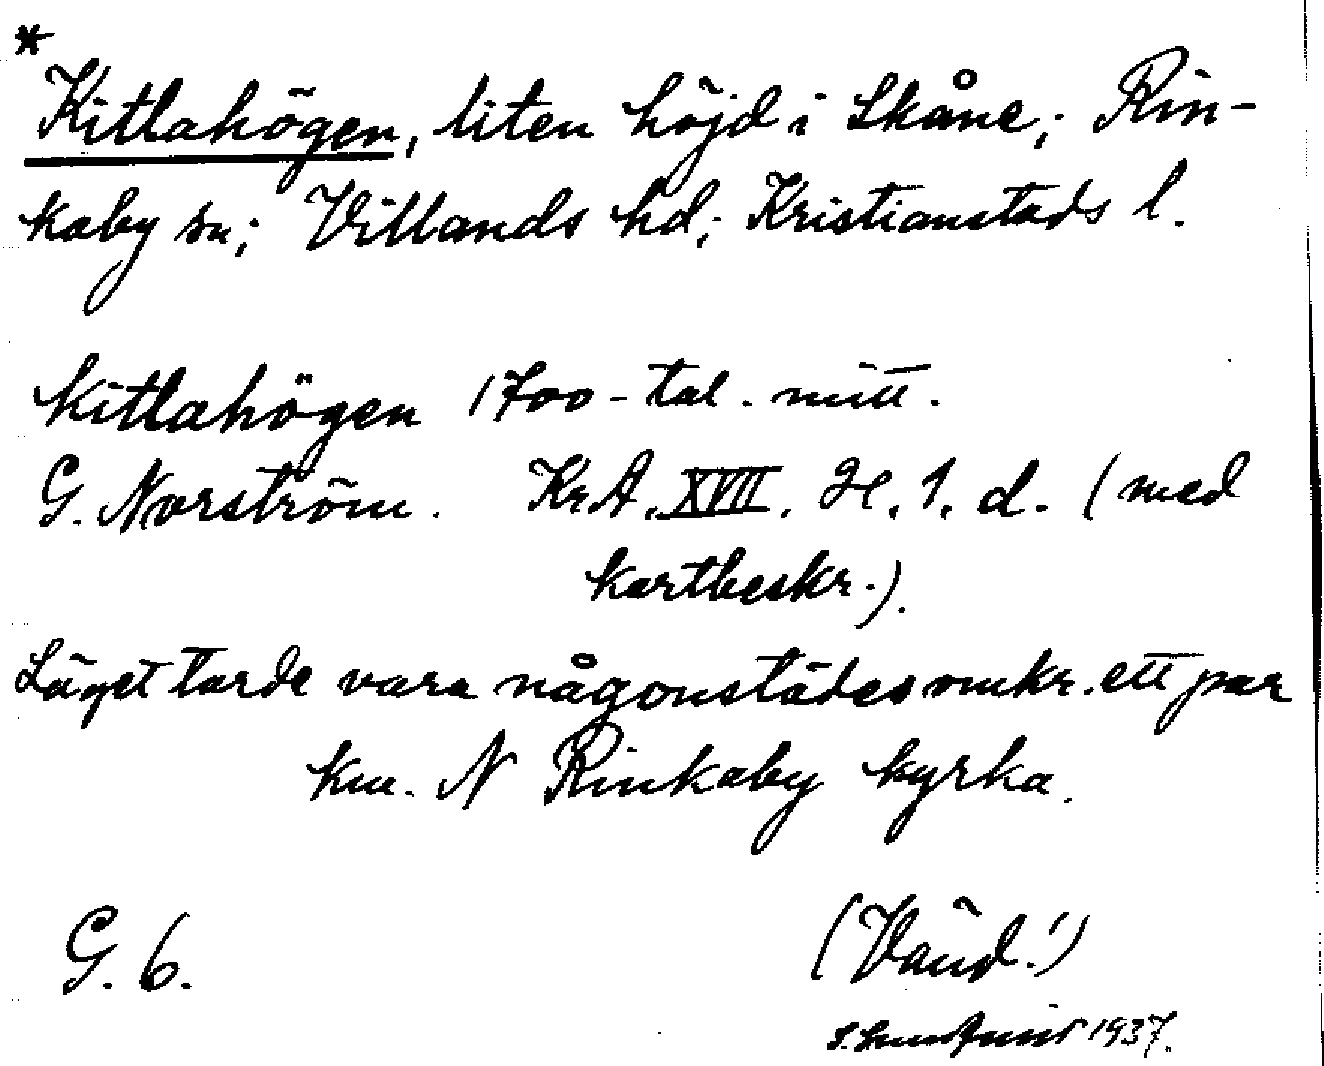 *
Kitlahögen, liten höjd i Skåne; Rin-
kaby sn; Villands hd; Kristianstads l.
Kitlahögen 1700-tal. mitt.
G. Norström. KrA. XVII. H. 1. d. (med
kartbeskr.).
Läget torde vara någonstädes omkr. ett par
km. N Rinkaby kyrka.
G. 6.
(Vänd!)
1937.